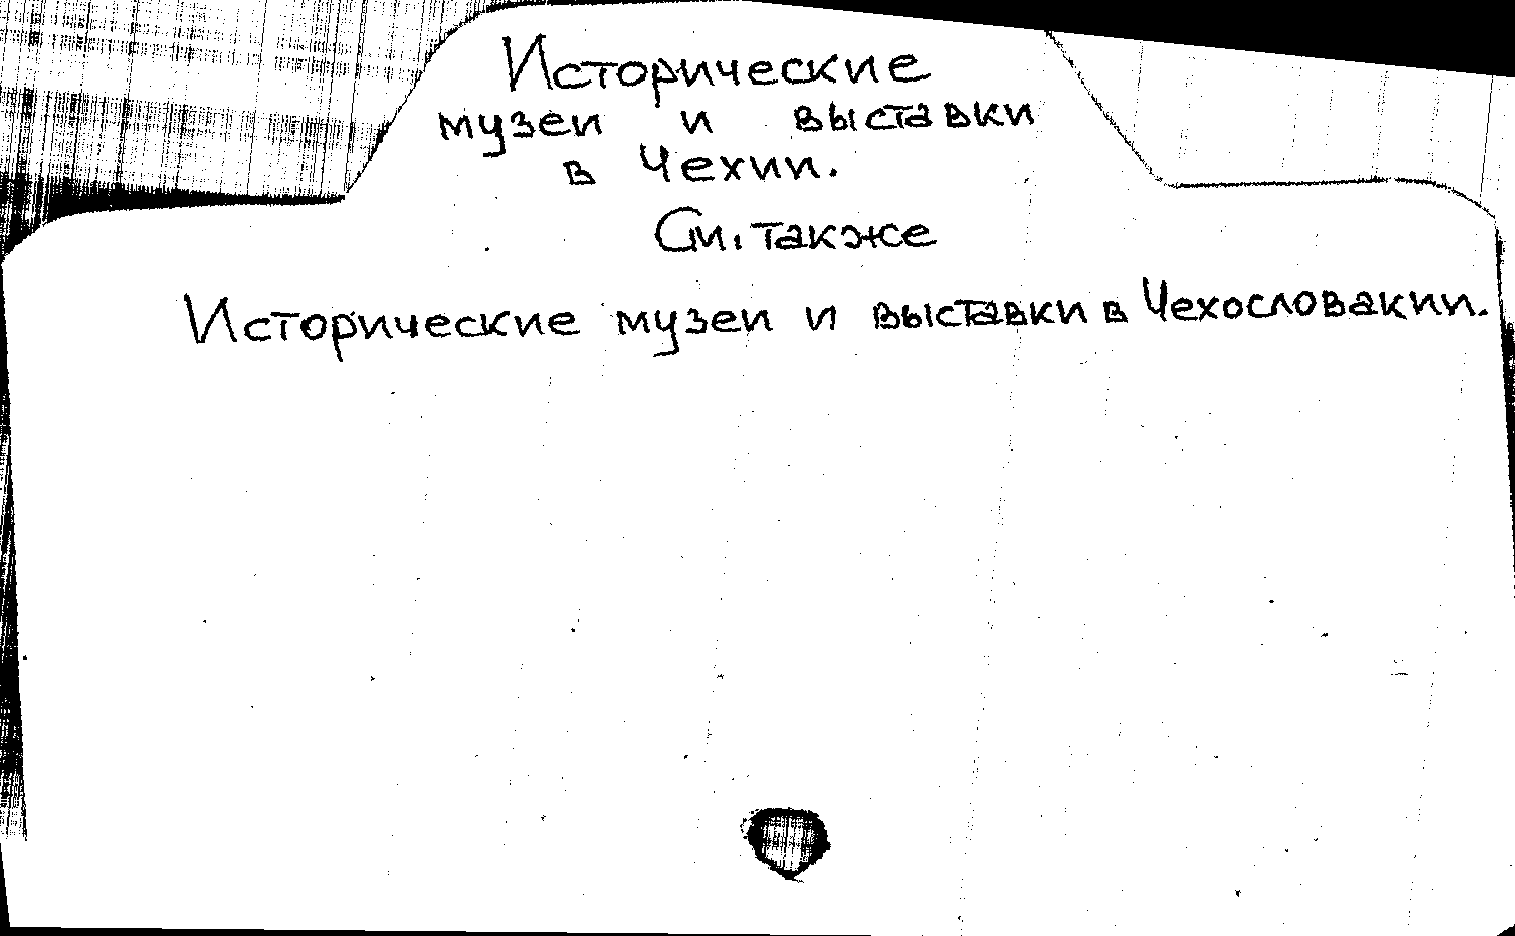 Исторические
музеи и выставки
в Чехии.
См. также
Исторические музеи и выставки в Чехословакии.